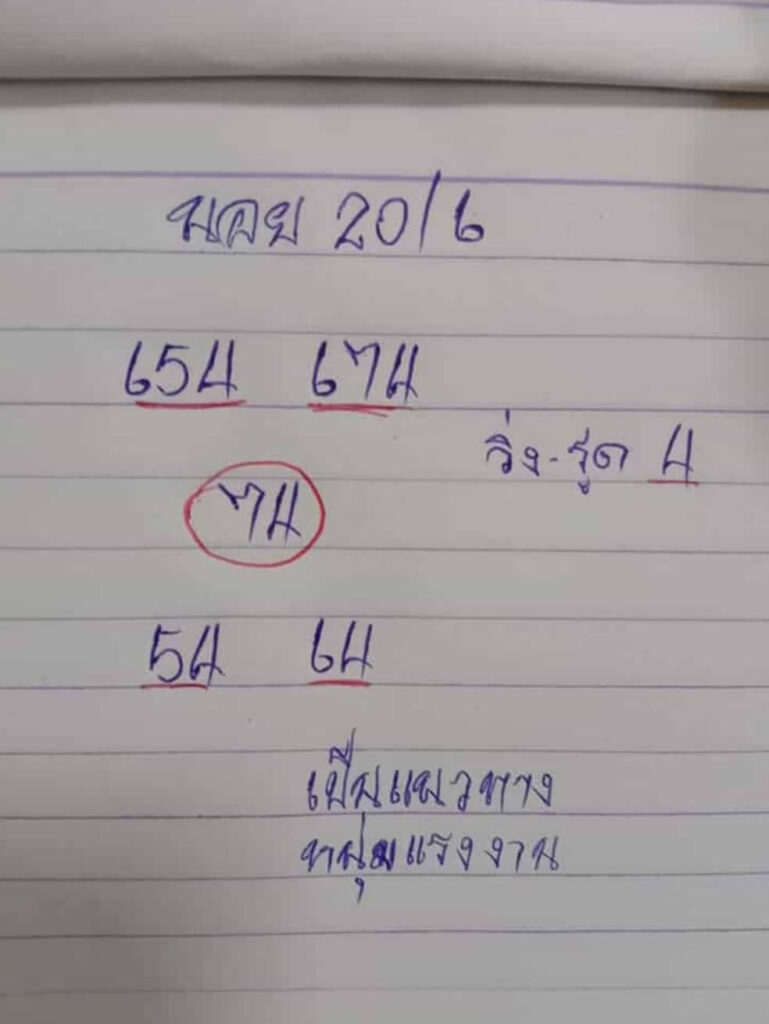 นอย 20/6
654 674
วิ่ง-รูด 4
74
54 64
เป็นแนวทาง
หนุ่มแรงงาน